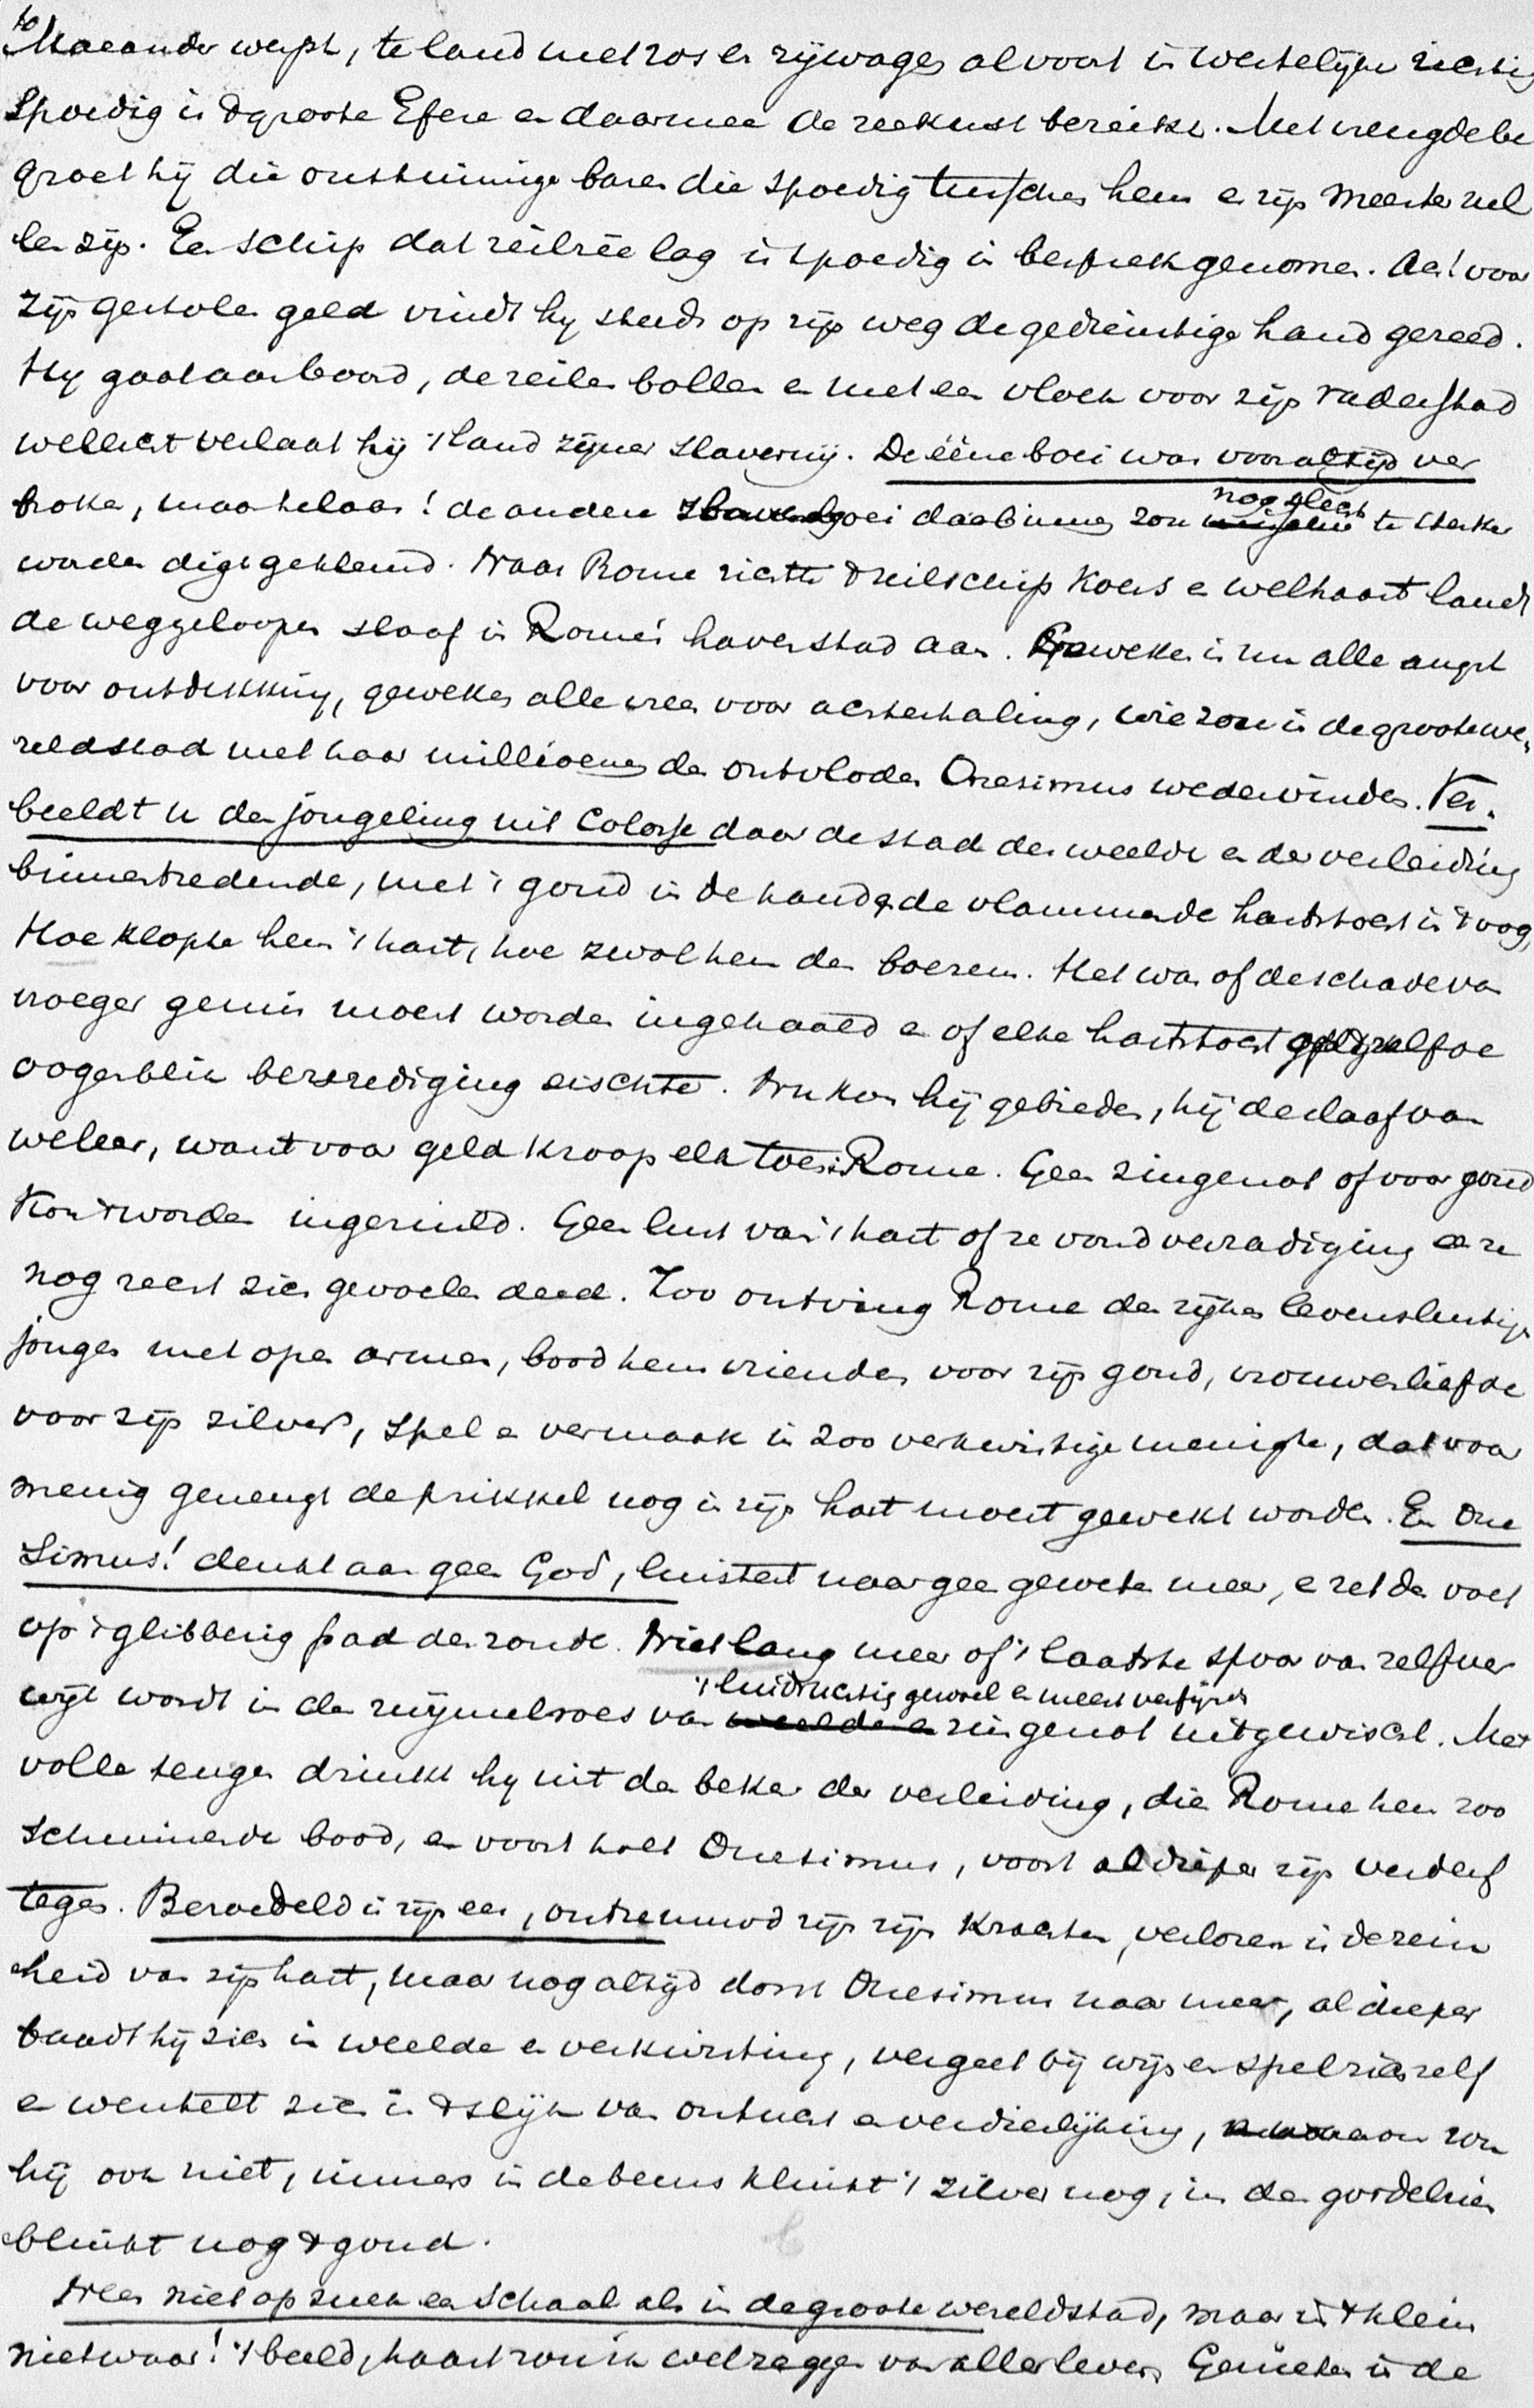 Maeander werpt, te land met ros en rijwagen al voort in westelijke richting
Spoedig is 't groote Efese en daarmee de zeekust bereikt. Met vreugde be
groet hij die onstuimige baren die spoedig tusschen hem en zijn meester zul
len zijn. Een schip dat zeilrée lag is spoedig in bespreek genomen. Ach! voor
zijn gestolen geld vindt hij steeds op zijn weg de gedienstige hand gereed.
Hij gaat aan boord, de zeilen bollen en met een vloek voor zijn vaderstad
wellicht verlaat hij 't land zijner slavernij. De ééne boei was voor altijd ver
broken, maar helaas! de andere boei daarbinnen zou nog slechts te sterker
worden digt geklemd. Naar Rome richtte 't zeilschip koers en welhaast landt
de weggeloopen slaaf in Rome's havenstad aan. Geweken is nu alle angst
voor ontdekking, geweken alle vrees voor achterhaling, wie zou in de groote we
reldstad met haar millioenen den ontvloden Onesimus wedervinden. Ver
beeldt u den jongeling uit Colosse daar de stad der weelde en der verleiding
binnentredende, met 't goud in de hand en de vlammende hartstocht in 't oog,
Hoe klopte hem 't hart, hoe zwol hem den boezem. Het was of de schade van
vroeger gemis moest worden ingehaald en of elke hartstocht op 't zelfde
oogenblik bevrediging eischte. Nu kon hij gebieden, hij de slaaf van
weleer, want voor geld kroop elk toen in Rome. Geen zingenot of voor goud
kon 't worden ingeruild. Geen lust van 't hart of ze vond verzadiging eer ze
nog recht zich gevoelen deed. Zoo ontving Rome den rijken levenslustigen
jongen met open armen, bood hem vrienden voor zijn goud, vrouwenliefde
voor zijn zilver, spel en vermaak in zoo verkwistige menigte, dat voor
menig geneugt de prikkel nog in zijn hart moest gewekt worden. En One
simus! denkt aan geen God, luistert naar geen geweten meer, en zet den voet
op 't glibberig pad der zonde. Niet lang meer of 't laatste spoor van zelfver
wijt wordt in den zwijmelroes van 't luidruchtig gewoel en meest verfijnde zingenot uitgewischt. Met
volle teugen drinkt hij uit den beker der verleiding, die Rome hem zoo
schuimende bood, en voort holt Onesimus, voort al dieper zijn verderf
tegen. Bezoedeld is zijn eer, ontzenuwd zijn zijn krachten, verloren is de rein
heid van zijn hart, maar nog altijd dorst Onesimus naar meer, al dieper
baadt hij zich in weelde en verkwisting, vergeet bij wijn en spel zich zelf
en wentelt zich in 't slijk van ontucht en verdierlijking, waarom zou
hij ook niet, immers in de beurs klinkt 't zilver nog, in den gordelriem
blinkt nog 't goud.
Neen niet op zulk een schaal als in de groote wereldstad, maar in 't klein
niet waar! 't beeld, haast zou ik wel zeggen van aller leven. Genieten is de